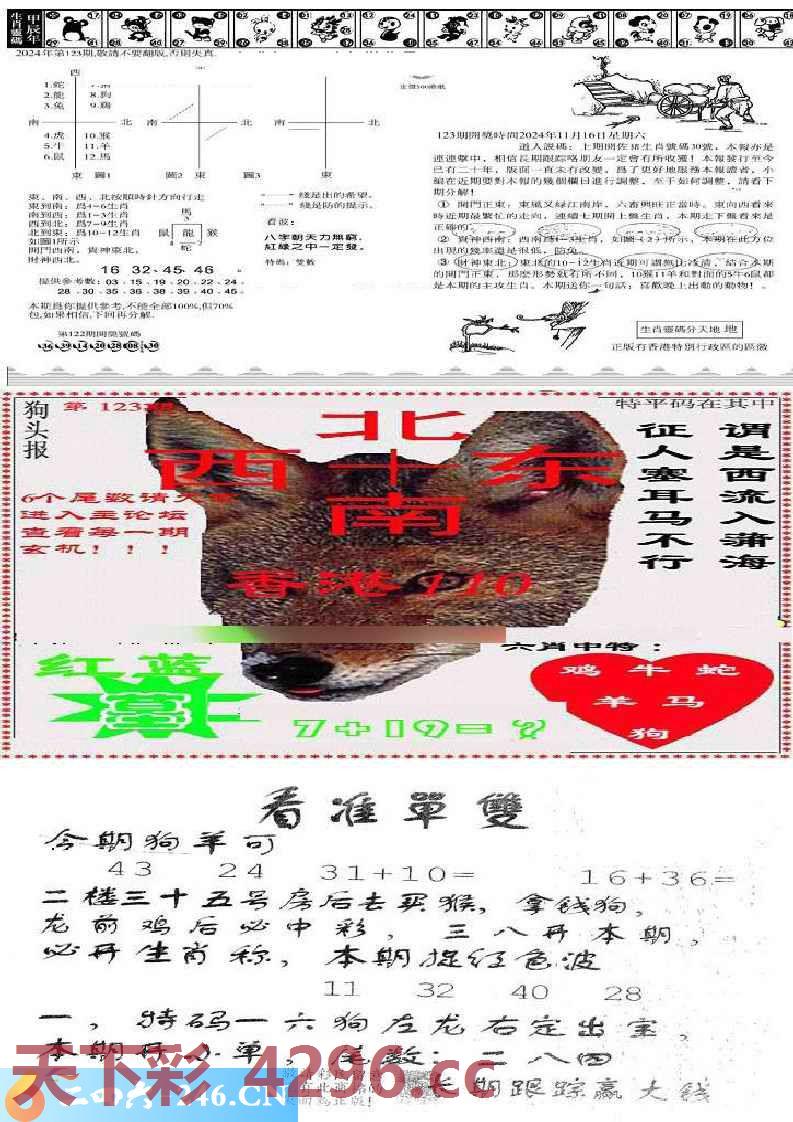 甲辰年
生肖靈碼
2024年第123期,敬請不要翻版,否則失真.
西
1.蛇
2.龍 8.狗
3.兔 9.鷄
南 北 南 北 南 北
4.虎 10.猴
5.牛 11.羊
6.鼠 12.馬
東 圖1 圖2 東 圖3 東
東、南、西、北按順時針方向行走
東到南：爲4-6生肖
南到西：爲1-3生肖
西到北：爲7-9生肖
北到東：爲10-12生肖
如圖1所示
開門西南，貴神東北，
財神西北.
馬
鼠 龍 猴
蛇
綫是出的希望,
綫是防的提示.
看波：
八字朝天力無窮,
紅綠之中一定發。
特碼：雙數
16 32.45.46
提供參考數：03．15．19．20．22．24．
28．30．35．36．38．39．40．45
本期爲你提供參考,不能全部100%,但70%
包,如果相信,下回再分解.
第122期開獎號碼
123期開獎時間2024年11月16日星期六
道人說碼：上期開佐豬生肖號碼30號，本報亦是
連連擊中，相信長期跟踪咯朋友一定會有所收獲！本報發行至今
已有二十年，版面一直未有改變，爲了更好地服務本報讀者，小
編在近期要對本報的幾個欄目進行調整，至于如何調整，請看下
期分解！
① 開門正東：東風又綠江南岸，六畜興旺正當時。東向西看來
時近期最繁忙的走向，連續七期開上盤生肖，本期走下盤看來是
正確的。
② 貴神西南：西南爲1-3生肖，如圖（2）所示，本期在此方位
出現的幾率還是很低，防兔。
③ 財神東北：東北的10-12生肖近期可謂無比冷清，結合本期
的開門正東，那麼形勢就有所不同，10猴11羊和對面的5牛6鼠都
是本期的主攻生肖。本期送你一句話：喜歡晚上出動的動物！。
生肖靈碼分天地 地
正版有香港特別行政區的區徽
狗头报
第 123期
特平码在其中
北
西 十 东
南
香港110
6个尾数请
进入主论坛
查看每一期
玄机！！！
谓是西流入蒲海
征人塞耳马不行
红蓝
7+19=?
六肖中特：
鸡 牛 蛇
羊 马
狗
看准單雙
今期狗羊可
43 24 31+10= 16+36=
二楼三十五号房后去买猴，拿钱狗，
龙前鸡后必中彩，三八开本期，
必开生肖称，本期捉红色波
11 32 40 28
一，特码一六狗左龙右定出宝，
本期开小单，尾数：二八四
长期跟踪赢大钱
天下彩 4296.cc
二四六-246.CN